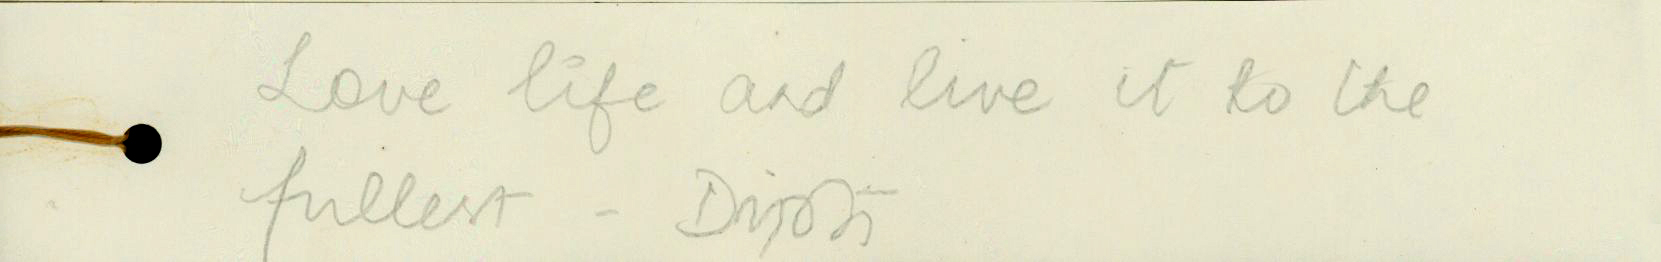 Love life and live it to the
fullest - Dipti